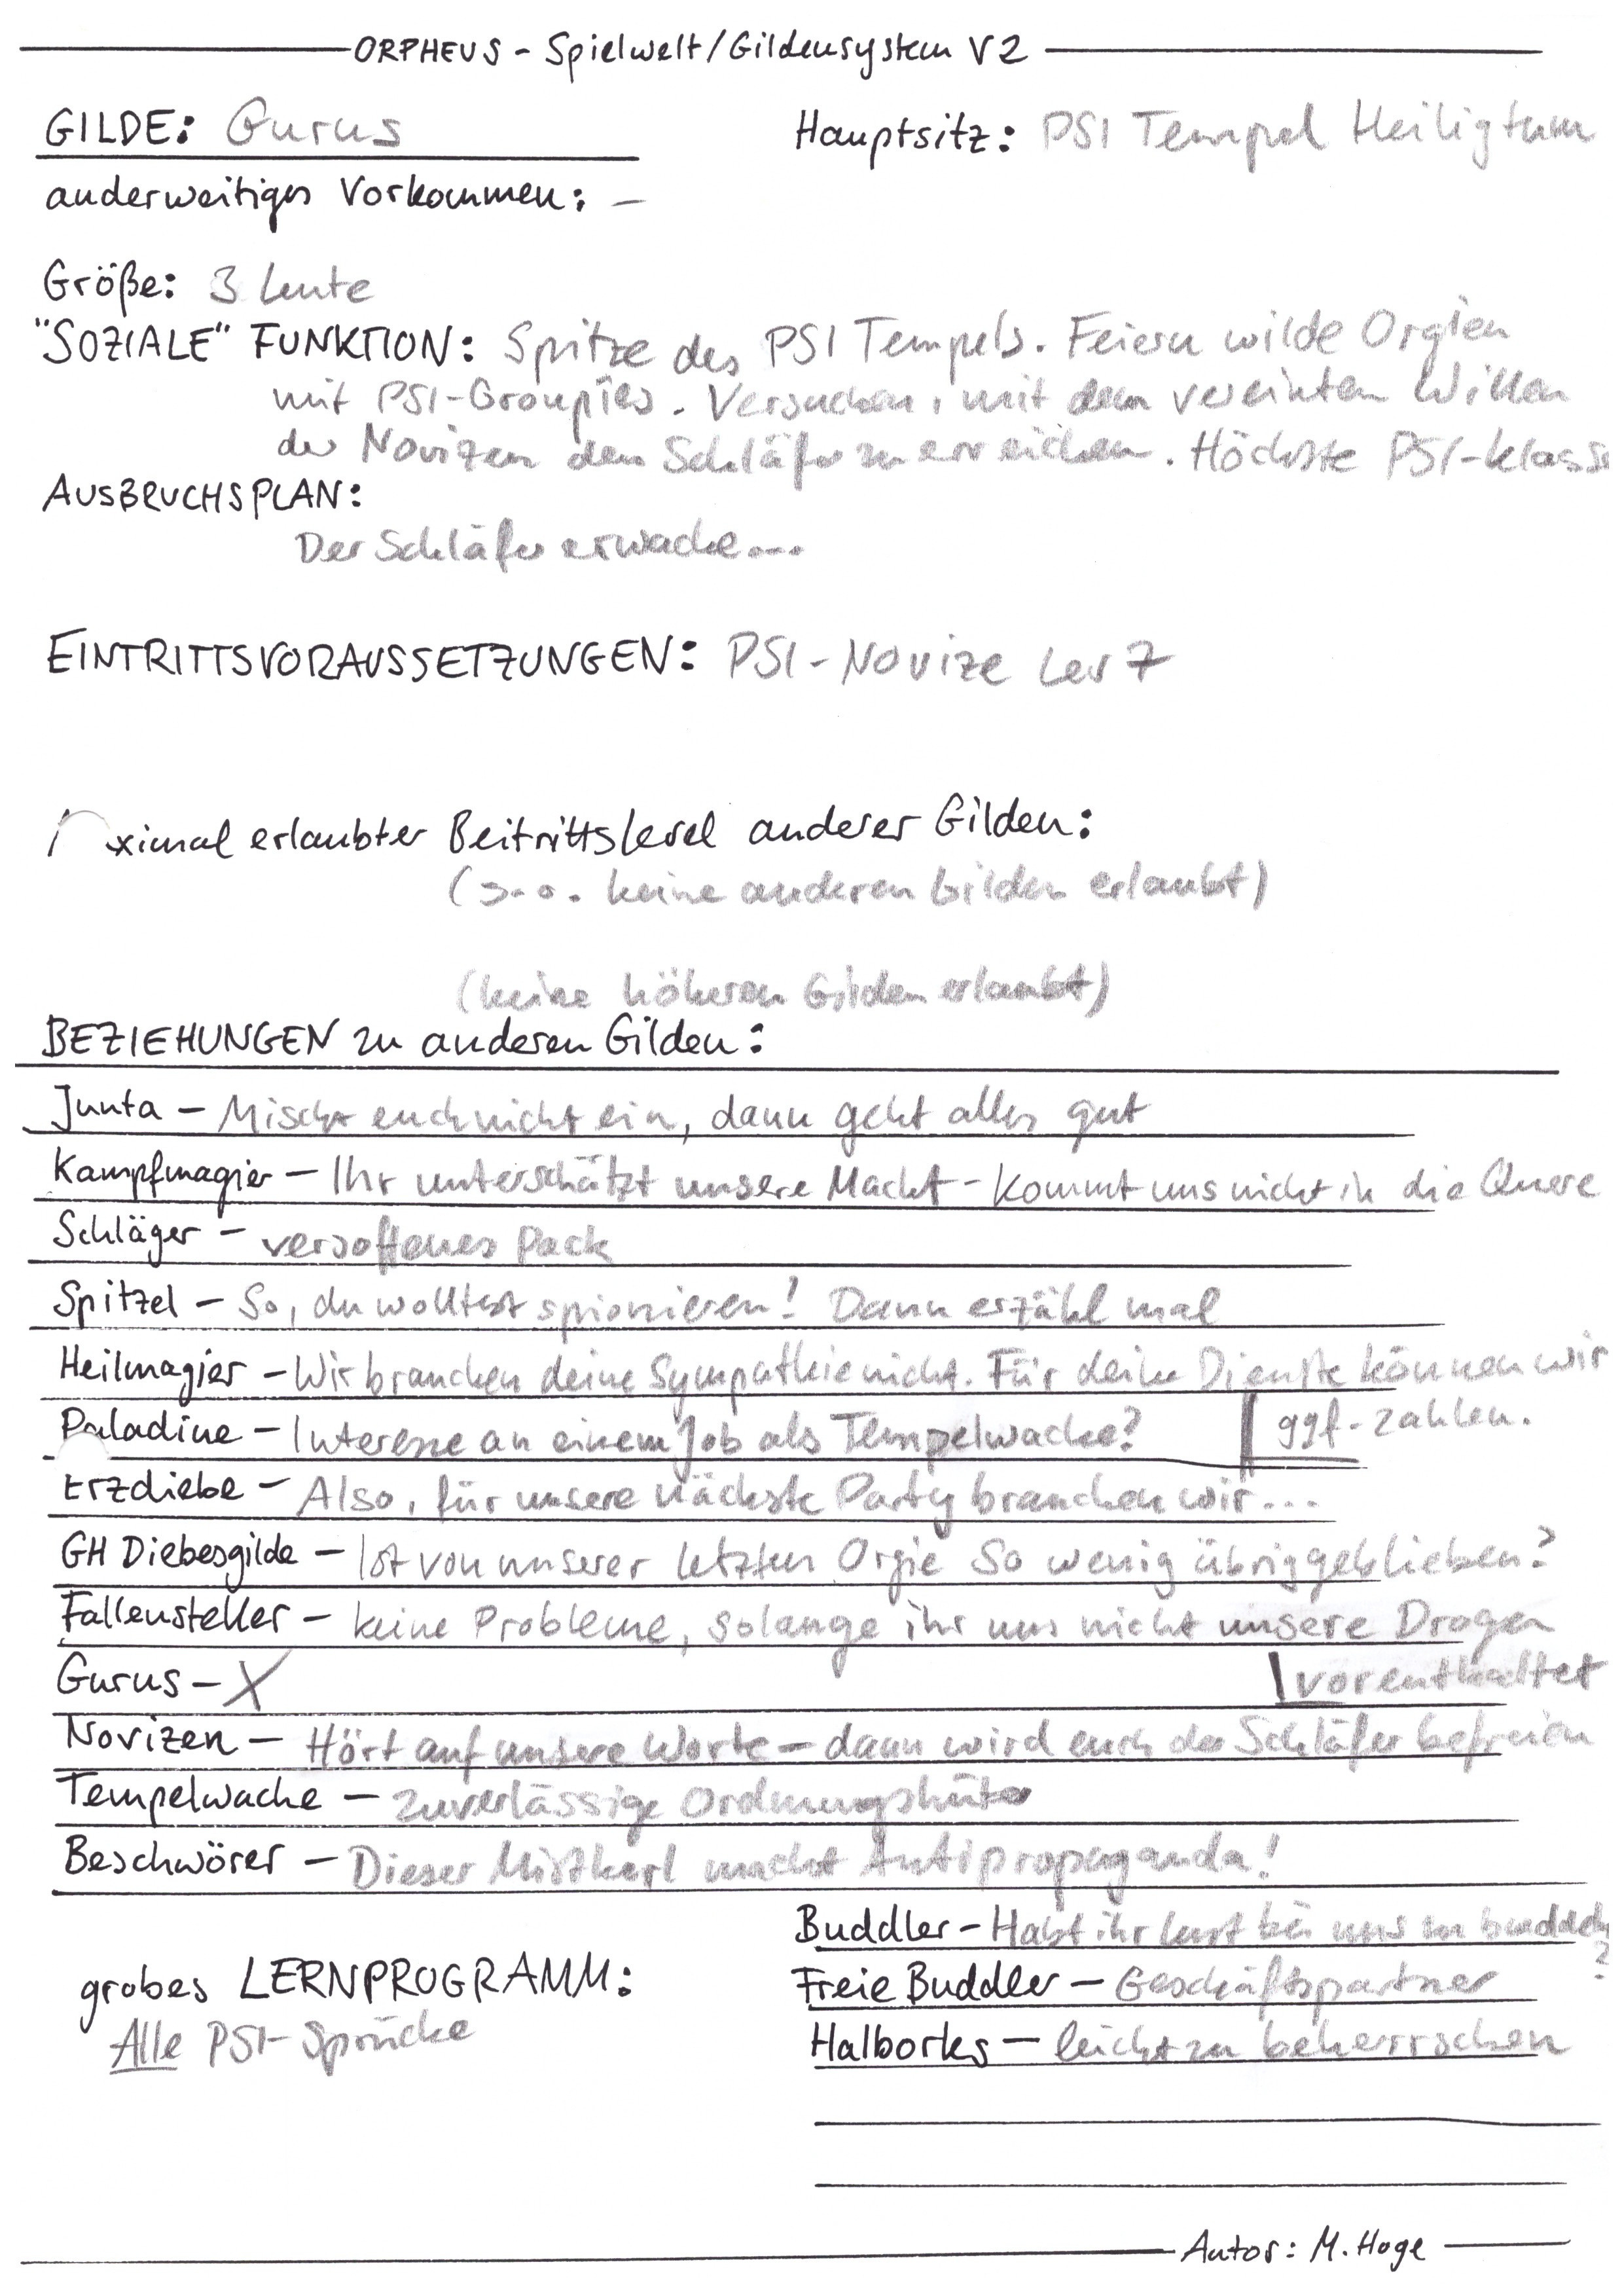 ORPHEUS - Spielwelt/Gildensystem V2
GILDE: Gurus
Hauptsitz: PSI Tempel Heiligtum
anderweitiges Vorkommen: -
Größe: 3 Leute
"SOZIALE" FUNKTION: Spitze des PSI Tempels. Feiern wilde Orgien
mit PSI-Groupies. Versuchen, mit dem vereinten Willen
der Novizen den Schläfer zu erreichen. Höchste PSI-Klasse
AUSBRUCHSPLAN:
Der Schläfer erwache...
EINTRITTSVORAUSSETZUNGEN: PSI-Novize Lev 7
ximal erlaubter Beitrittslevel anderer Gilden:
(s.o. keine anderen Gilden erlaubt)
(keine höheren Gilden erlaubt)
BEZIEHUNGEN zu anderen Gilden:
Junta - Mischt euch nicht ein, dann geht alles gut
Kampfmagier - Ihr unterschätzt unsere Macht - kommt uns nicht in die Quere
Schläger - versoffenes Pack
Spitzel - So, du wolltest spionieren! Dann erzähl mal
Heilmagier - Wir brauchen deine Sympathie nicht. Für deine Dienste können wir
ggf. zahlen.
Paladine - Interesse an einem Job als Tempelwache?
Erzdiebe - Also, für unsere nächste Party brauchen wir...
GH Diebesgilde - Ist von unserer letzten Orgie so wenig übriggeblieben?
Fallensteller - keine Probleme, solange ihr uns nicht unsere Drogen
vorenthaltet
Gurus - X
Novizen - Hört auf unsere Worte - dann wird euch der Schläfer befreien
Tempelwache - zuverlässige Ordnungshüter
Beschwörer - Dieser Mistkerl macht Antipropaganda!
Buddler - Habt ihr Lust bei uns zu buddeln
?
Freie Buddler - Geschäftspartner
Halborks - leicht zu beherrschen
grobes LERNPROGRAMM:
Alle PSI-Sprüche
Autor: M. Hoge